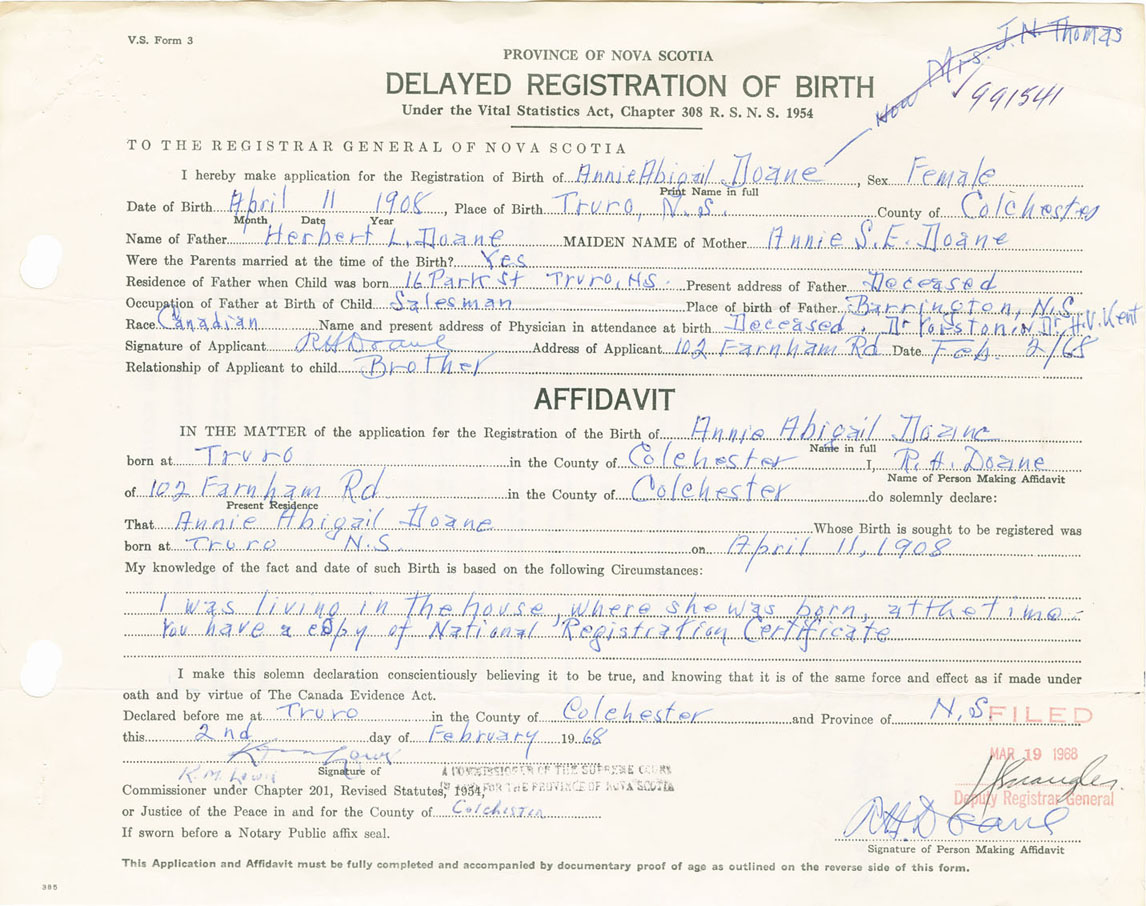 V.S. Form 3
Now Mrs. J.N. Thomas
991541
PROVINCE OF NOVA SCOTIA
DELAYED REGISTRATION OF BIRTH
Under the Vital Statistics Act, Chapter 308 R. S. N. S. 1954
TO THE REGISTRAR GENERAL OF NOVA SCOTIA
I hereby make application for the Registration of Birth of Annie Abigail Doane, Sex Female
Print Name in full
Date of Birth April 11 1908, Place of Birth Truro, N.S. County of Colchester
Month Date Year
Name of Father Herbert L. Doane MAIDEN NAME of Mother Annie S.E. Doane
Were the Parents married at the time of the Birth? Yes
Residence of Father when Child was born 16 Park St Truro, N.S. Present address of Father Deceased
Occupation of Father at Birth of Child Salesman Place of birth of Father Barrington, N.S
Race Canadian Name and present address of Physician in attendance at birth Deceased. Dr H.V. Kent
Signature of Applicant RHDoane Address of Applicant 102 Farnham Rd Date Feb. 2/68
Relationship of Applicant to child Brother
AFFIDAVIT
IN THE MATTER of the application for the Registration of the Birth of Annie Abigail Doane
Name in full
born at Truro in the County of Colchester I, R.H. Doane
Name of Person Making Affidavit
of 102 Farnham Rd in the County of Colchester do solemnly declare:
Present Residence
That Annie Abigail Doane Whose Birth is sought to be registered was
born at Truro N.S. on April 11, 1908
My knowledge of the fact and date of such Birth is based on the following Circumstances:
I was living in the house, where she was born, at the time.
You have a copy of National Registration Certificate
I make this solemn declaration conscientiously believing it to be true, and knowing that it is of the same force and effect as if made under
oath and by virtue of The Canada Evidence Act.
Declared before me at Truro in the County of Colchester and Province of N.S
FILED
this 2nd day of February 1968
MAR 19 1968
R.M. Lowe
Signature of
A COMMISSIONER OF THE SUPREME COURT
IN AND FOR THE PROVINCE OF NOVA SCOTIA
Commissioner under Chapter 201, Revised Statutes, 1954,
Deputy Registrar General
or Justice of the Peace in and for the County of Colchester
RHDoane
If sworn before a Notary Public affix seal.
Signature of Person Making Affidavit
This Application and Affidavit must be fully completed and accompanied by documentary proof of age as outlined on the reverse side of this form.
395